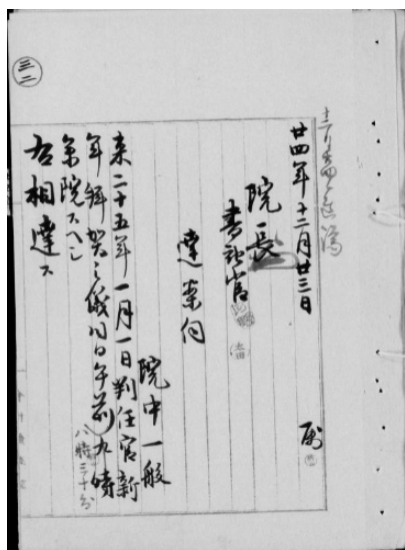 三二
廿四年十二月廿三日
院長
書記官
達案伺
院中一般
来二十五年一月一日判任官新
年拝賀之儀同日午前九時
八時三十分
参院スヘシ
右相達ス